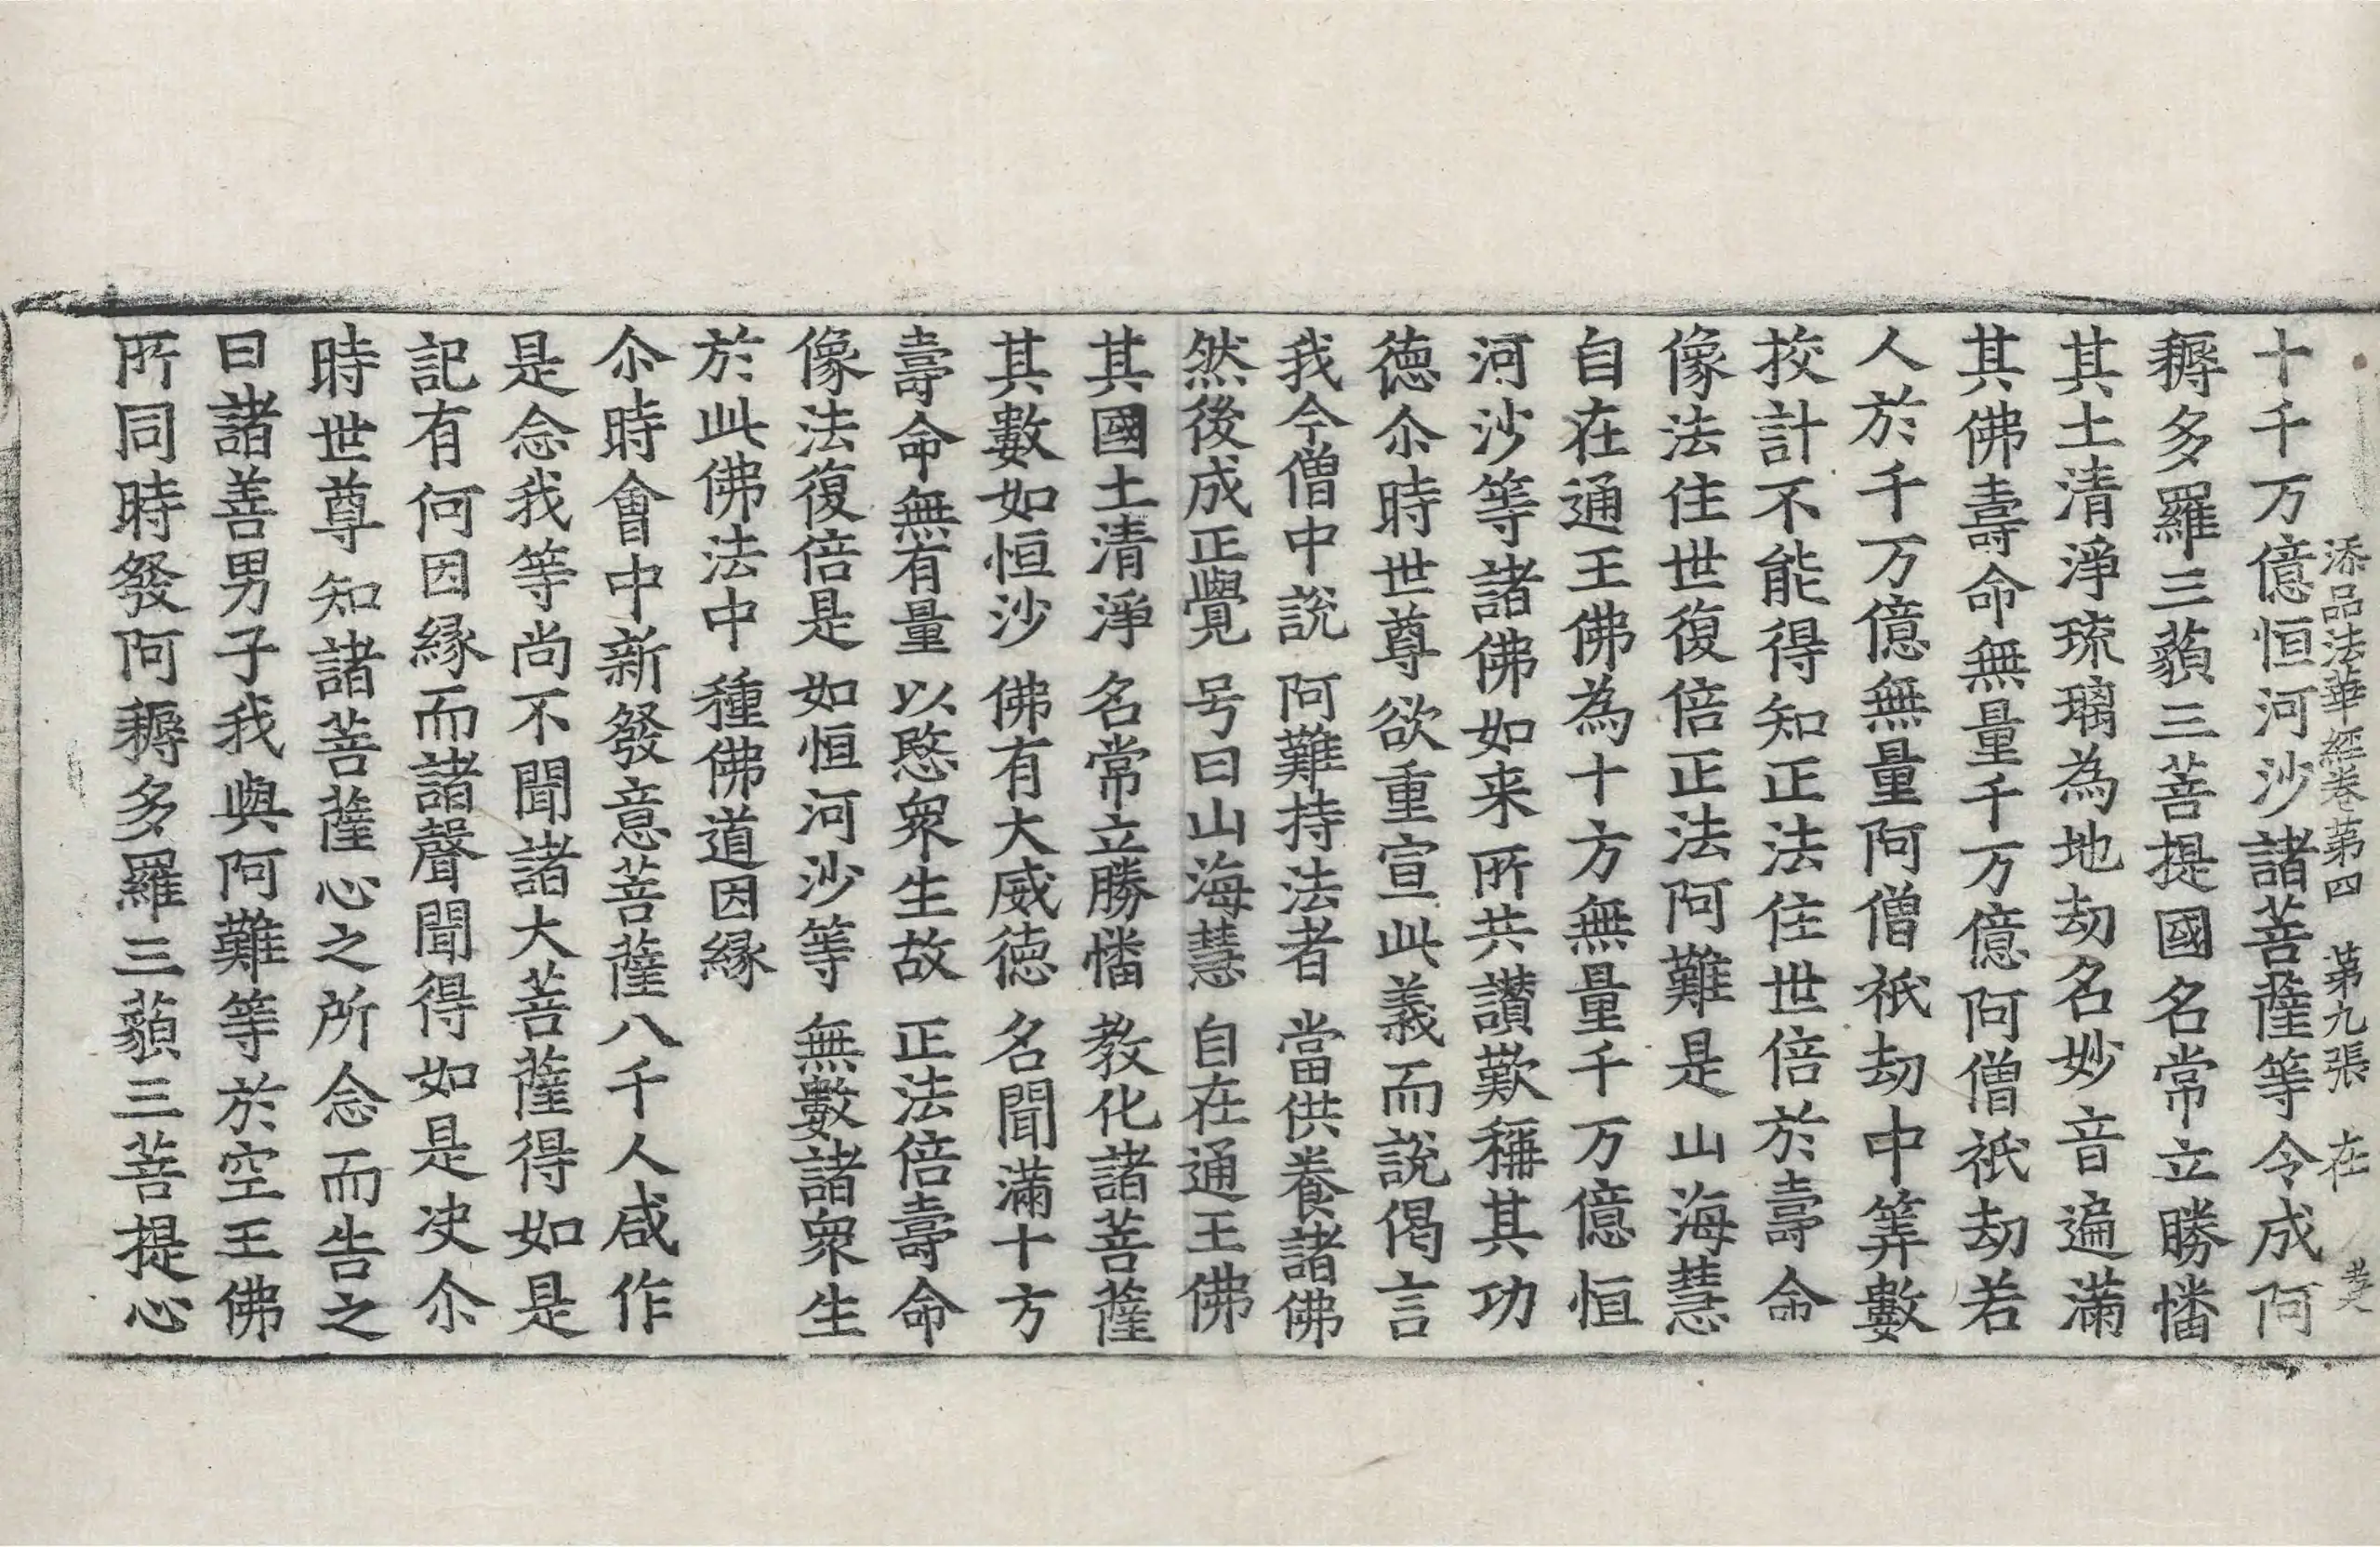 添品法華經卷第四　第九張　在
十千万億恒河沙諸菩薩等令成阿
耨多羅三藐三菩提國名常立勝幡
其土清淨琉璃為地劫名妙音遍滿
其佛壽命無量千万億阿僧祇劫若
人於千万億無量阿僧祇劫中筭數
挍計不能得知正法住世倍於壽命
像法住世復倍正法阿難是山海慧
自在通王佛為十方無量千万億恒
河沙等諸佛如来所共讚歎稱其功
徳尒時世尊欲重宣此義而說偈言
我今僧中說　阿難持法者　當供養諸佛
然後成正覺　号曰山海慧　自在通王佛
其國土清淨　名常立勝幡　教化諸菩薩
其數如恒沙　佛有大威徳　名聞滿十方
壽命無有量　以愍衆生故　正法倍壽命
像法復倍是　如恒河沙等　無數諸衆生
於此佛法中　種佛道因緣
尒時會中新發意菩薩八千人咸作
是念我等尚不聞諸大菩薩得如是
記有何因緣而諸聲聞得如是决尒
時世尊知諸菩薩心之所念而告之
曰諸善男子我與阿難等於空王佛
所同時發阿耨多羅三藐三菩提心